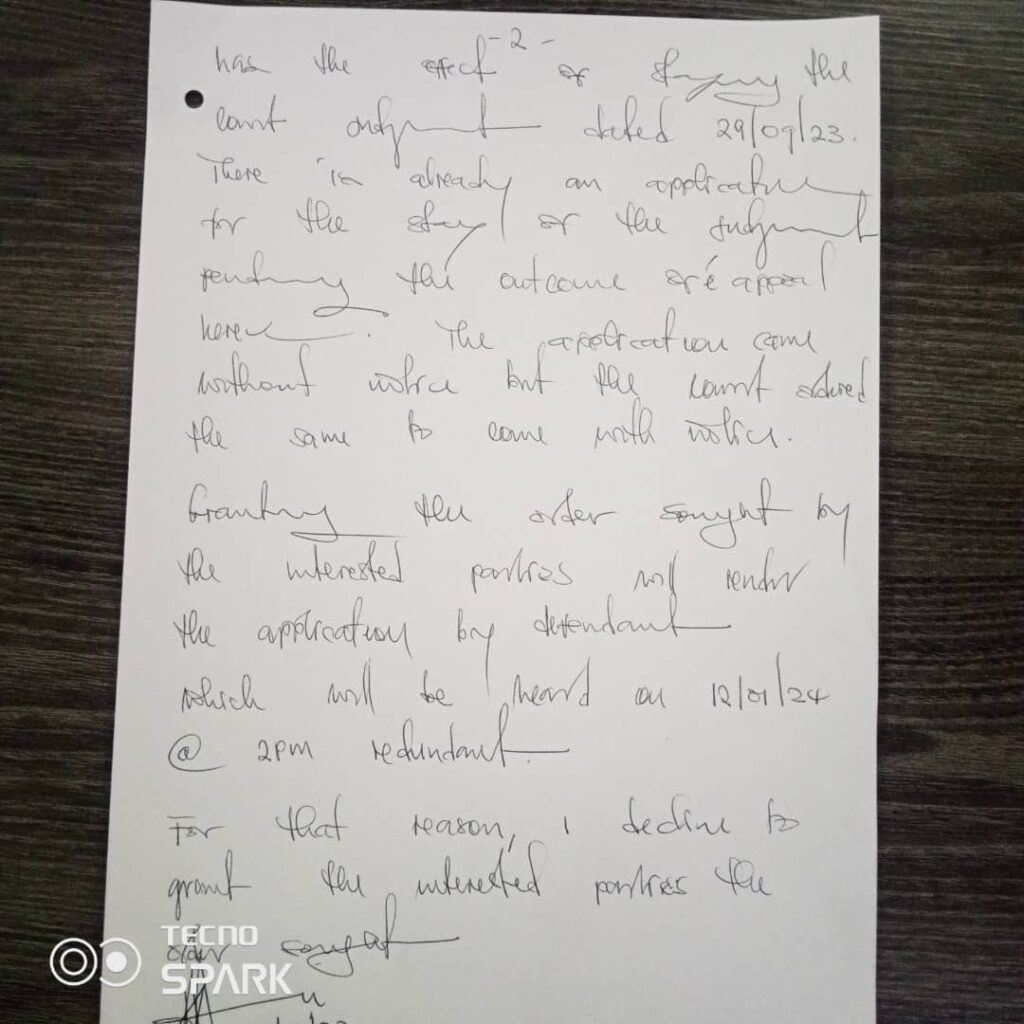 - 2 -
has the effect of staying the
court judgment dated 29/09/23.
There is already an application
for the stay of the judgment
pending the outcome of appeal
here. The application came
without notice but the court ordered
the same to come with notice.
Granting the order sought by
the interested parties will render
the application by defendant
which will be heard on 12/01/24
@ 2PM redundant.
For that reason, I decline to
grant the interested parties the
order sought
TECNO
SPARK